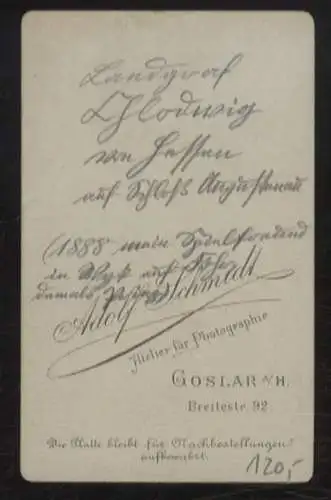 Landgraf
Chlodwig
von Hessen
auf Schloß Augustenau
(1888 mein Spielfreund
in Wyk auf Föhr
damals
Adolf Schmidt
Atelier für Photographie
GOSLAR a/H.
Breitestr. 92
Die Platte bleibt für Nachbestellungen
aufbewahrt.
120,-